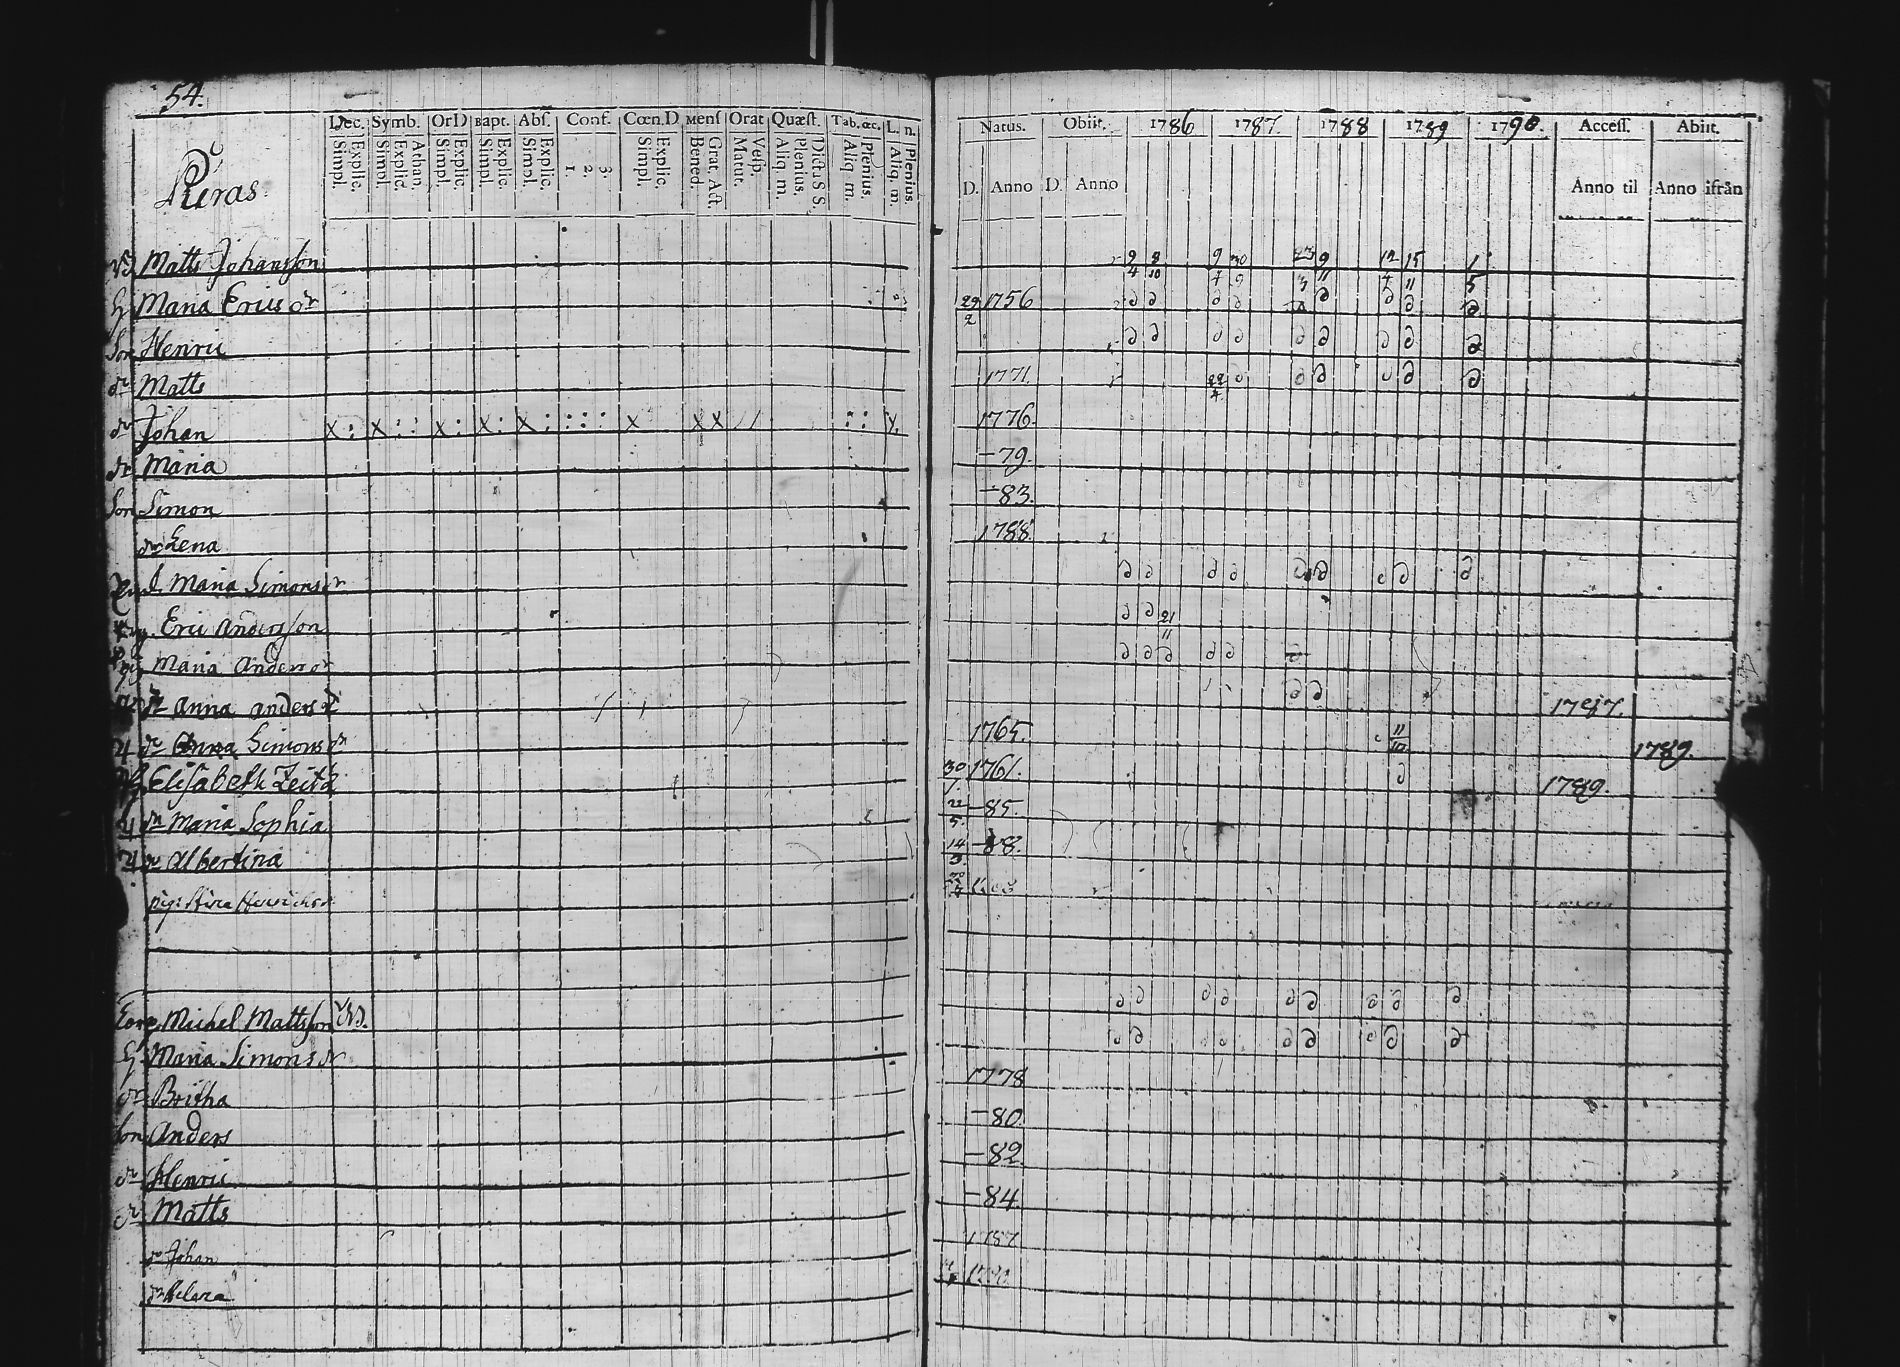 54.
Dec. Symb. OrD Bapt. Abs. Conf. Cœn.D Mens Orat Quæst. Tab. œc. L. n.
Simpl. Explic. Simpl. Explic. Athan. Simpl. Explic. Simpl. Explic. Simpl. Explic. 1. 2. 3. Simpl. Explic. Bened. Grat. Act. Matut. Vesp. Aliq. m. Plenius. Dict. S. S. Aliq. m. Plenius. Aliq. m. Plenius.
Natus. Obiit. 1786 1787. 1788 1789 1790. Access. Abiit.
D. Anno D. Anno Anno til Anno ifrån
Matts Johansson 9/4 8/10 9/4 30/9 23/3 9/11 12/4 15/11 1/5
Maria Erics dr 29/2 1756
Son Henric
dr Matts 1771
dr Johan 1776.
dr Maria -79.
Son Simon -83.
dr Lena 1788
Maria Simons dr
Eric Andersson 21/11
Maria Anders dr
Anna Anders dr 1787.
dr Anna Simons dr 1765. 11/10 1789.
Elisabeth 30 1761. 1789
dr Maria Sophia 22/5. -85.
dr Albertina 14/3. -88.
Michel Mattsson
H. Maria Simons dr
dr Britha 1778
Son Anders -80.
dr Henric -82.
dr Matts -84.
dr Johan 1787